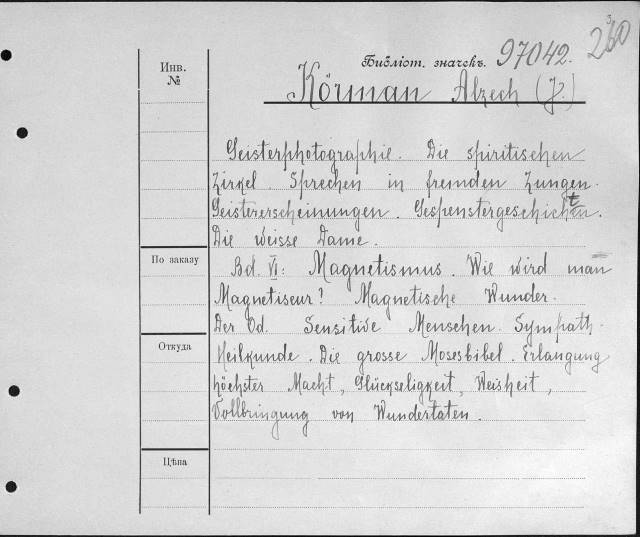 3
260
Библіот. значекъ. 97042.
Инв.
№
Körman Alzech (J.)
Geisterphotographie. Die spiritischen
Zirkel. Sprechen in fremden Zungen.
Geistererscheinungen. Gespenstergeschichten.
Die weisse Dame.
По заказу
Bd. VI: Magnetismus. Wie wird man
Magnetiseur? Magnetische Wunder.
Der Od. Sensitive Menschen. Sympath.
Откуда
Heilkunde. Die grosse Mosesbibel. Erlangung
höchster Macht, Glückseligkeit, Weisheit,
Vollbringung von Wundertaten.
Цѣна